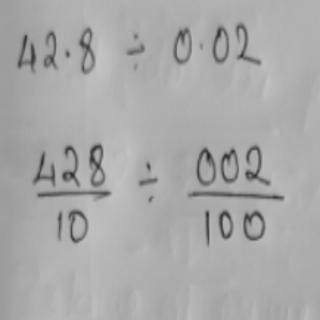 42.8 ÷ 0.02
428/10 ÷ 002/100